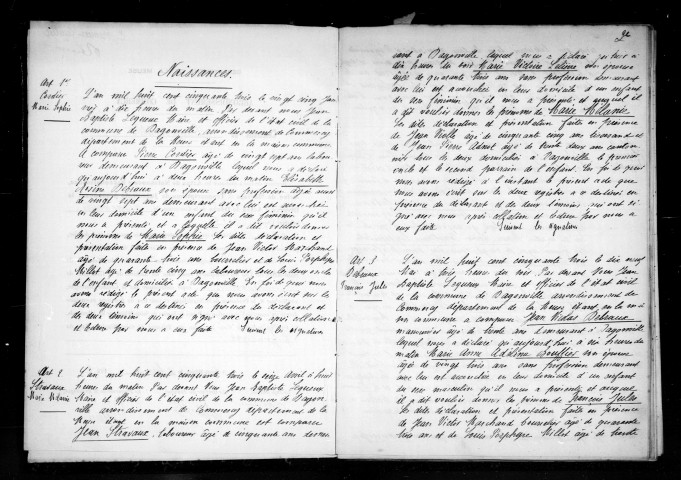 Naissances.
Art. 1er
Cordier
Marie Sophie
L'an mil huit cent cinquante trois le vingt cinq Jan
vier à dix heures du matin Par devant nous Jean
Baptiste Legueux Maire et officier de l'état civil de la
commune de Bazonville, arrondissement de Commercy
département de la Meuse étant en la maison commune
a comparu Cordier âgé de vingt sept ans
demeurant à Bazonville lequel nous a déclaré
qu'aujourd'hui à deux heures du matin Elisabelle
Rosine Debeaux son épouse sans profession âgée aussi
de vingt sept ans demeurant avec lui est accouchée
en leur domicile d'un enfant du sexe féminin qu'il
nous a présenté et à laquelle il a dit vouloir donner
les prénoms de Marie Sophie Les dites déclaration et
présentation faite en présence de Jean Victor Marchand
âgé de quarante trois ans bourrelier et de Louis Porphyre
Millot âgé de trente cinq ans laboureur tous les deux oncle
de l'enfant et domiciliés à Bazonville En foi de quoi nous
avons rédigé le présent acte que nous avons écrit sur les
deux registres à ce destinés en présence du déclarant et
des deux témoins qui ont signé avec nous après collation
et lecture par nous a eux faite Suivent les signatures
Art. 2
Stravaux
Marie Mélanie
L'an mil huit cent cinquante trois le seize avril à huit
heures du matin Par devant Nous Jean Baptiste Legueux
Maire et officier de l'état civil de la commune de Bazon
ville arrondissement de Commercy département de la
Meuse étant en la maison commune est comparu
Jean Stravaux, laboureur âgé de cinquante ans demeu
2
rant à Bazonville lequel nous a déclaré
dix heures du soir Marie Victoire son épouse
âgée de quarante trois ans sans profession demeurant
avec lui est accouchée en leur domicile d'un enfant
du sexe féminin qu'il nous a présenté et auquel il
a dit vouloir donner les prénoms de Marie Mélanie
Les dites déclaration et présentation faite en présence
de Jean âgé de cinquante cinq ans et
de Jean Pierre Adnot âgé de trente deux ans
tous les deux domiciliés à Bazonville le premier
oncle et le second parrain de l'enfant En foi de quoi
nous avons rédigé à l'instant le présent acte que
nous avons écrit sur les deux registres à ce destinés en
présence du déclarant et des deux témoins, qui ont si
gné avec nous après collation et lecture par nous a
eux faite Suivent les signatures
Art. 3
Debeaux
François Jules
L'an mil huit cent cinquante trois le dix neuf
Mai à trois heures du soir Par devant Nous Jean
Baptiste Legueux Maire et officier de l'état civil
de la commune de Bazonville arrondissement de
Commercy département de la Meuse étant en la mai
son commune a comparu Jean Victor Debeaux
manouvrier âgé de trente ans demeurant à Bazonville
lequel nous a déclaré qu'aujourd'hui à six heures du
matin Marie Anne Adeline Bouillier son épouse
âgée de vingt trois ans sans profession demeurant
avec lui est accouchée en leur domicile d'un enfant
du sexe masculin qu'il nous a présenté et auquel
il a dit vouloir donner les prénoms de François Jules
Les dites déclaration et présentation faite en présence
de Jean Victor Marchand bourrelier âgé de quarante
trois ans et de Louis Porphyre Millot âgé de trente